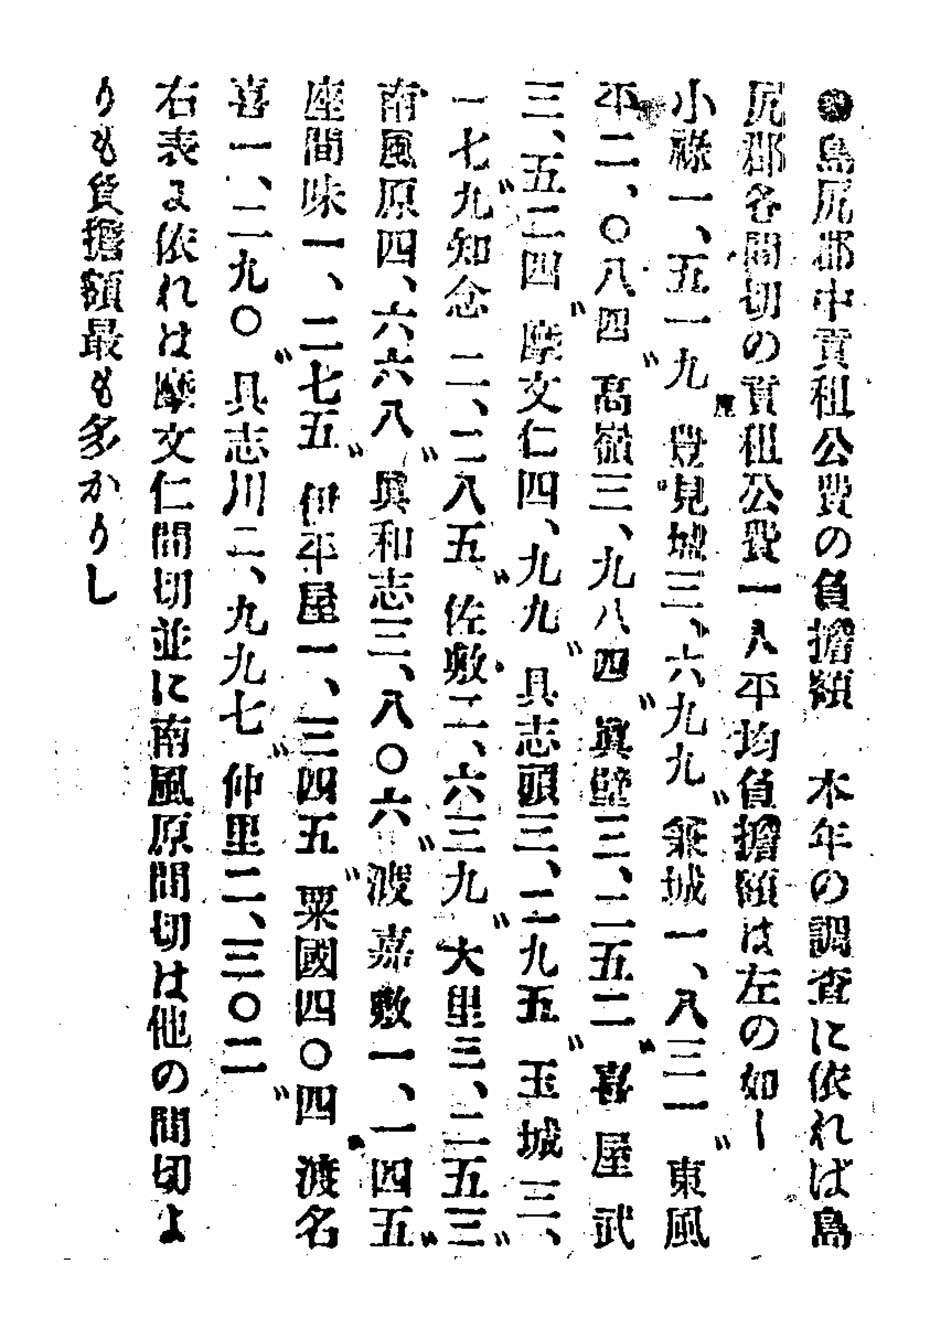 ●島尻郡中貢租公費の負擔額　本年の調査に依れば島
尻郡各間切の貢租公費一人平均負擔額は左の如し
小祿一、五一九　豊見城三、六九九〃兼城一、八三一〃東風
平二、〇八四〃高嶺三、九八四〃眞壁三、二五二〃喜屋武
三、五二四〃摩文仁四、九九〃具志頭三、二九五〃玉城三、
一七九〃知念二、二八五〃佐敷二、六三九〃大里三、二五三〃
南風原四、六六八〃眞和志三、八〇六〃渡嘉敷一、一四五〃
座間味一、二七五〃伊平屋一、三四五〃粟國四〇四〃渡名
喜一、二九〇〃具志川二、九九七〃仲里二、三〇二〃
右表よ依れは摩文仁間切並に南風原間切は他の間切よ
りも負擔額最も多かりし